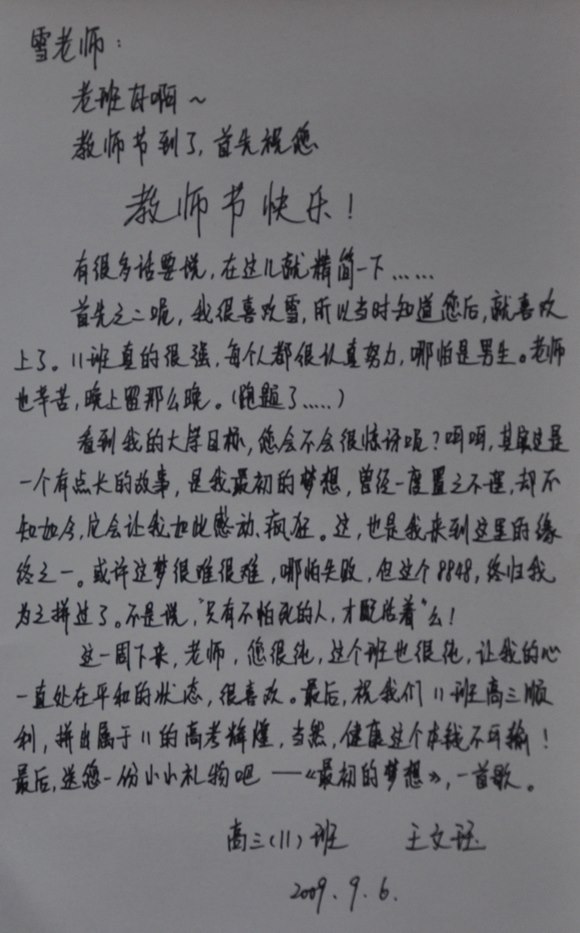 雪老师：
老班母啊～
教师节到了，首先祝您
教师节快乐！
有很多话要说，在这儿就精简一下……
首先之二呢，我很喜欢雪，所以当时知道您后，就喜欢
上了。11班真的很强，每个人都很认真努力，哪怕是男生。老师
也辛苦，晚上留那么晚。（跑题了.....）
看到我的大学目标，您会不会很惊讶呢？呵呵，其实这是
一个有点长的故事，是我最初的梦想，曾经一度置之不理，却不
知如今，它会让我如此感动、疯狂。这，也是我来到这里的缘
终之一。或许这梦很难很难，哪怕失败，但这个8848，终归我
为之拼过了。不是说，“只有不怕死的人，才配活着”么！
这一周下来，老师，您很纯，这个班也很纯，让我的心
一直处在平和的状态，很喜欢。最后，祝我们11班高三顺
利，拼出属于11的高考辉煌，当然，健康这个本钱不可输！
最后，送您一份小小礼物吧——《最初的梦想》，一首歌。
高三（11）班 王文
2009.9.6.